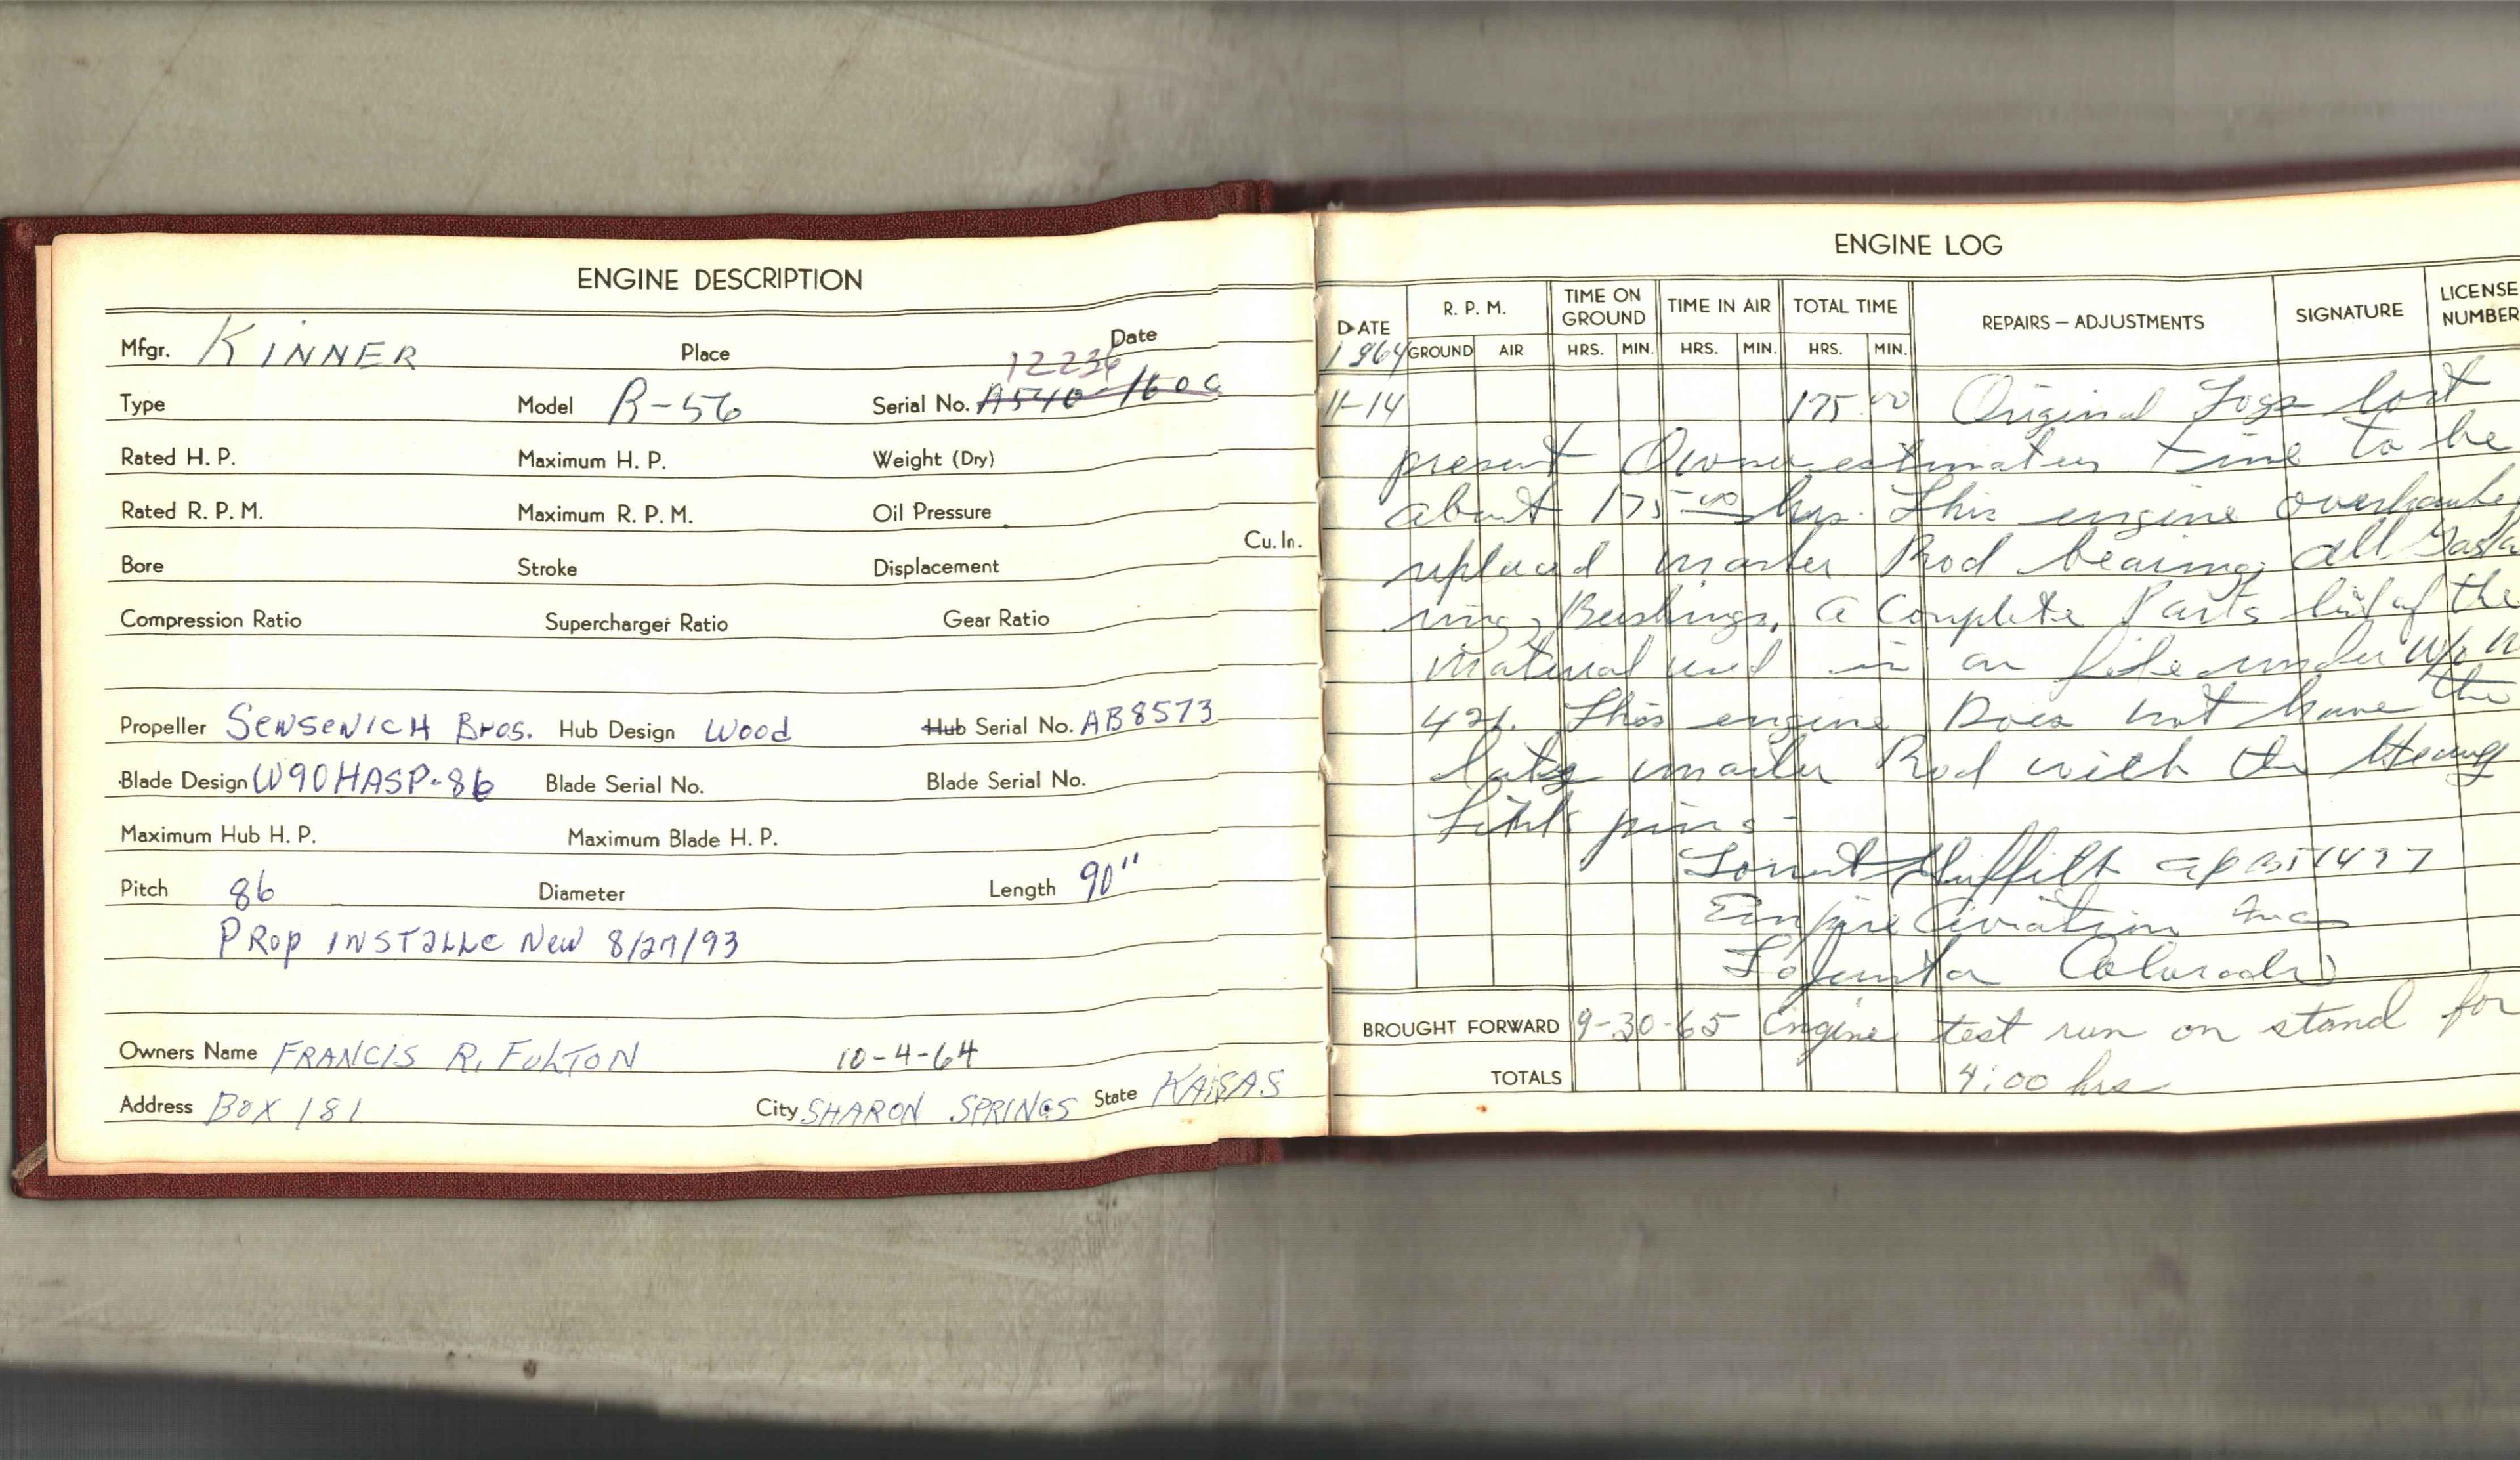 ENGINE DESCRIPTION
Mfgr. KINNER Place Date
12236
Type Model R-56 Serial No. A540-160
Rated H. P. Maximum H. P. Weight (Dry)
Rated R. P. M. Maximum R. P. M. Oil Pressure
Bore Stroke Displacement Cu. In.
Compression Ratio Supercharger Ratio Gear Ratio
Propeller SENSENICH Bros. Hub Design Wood Hub Serial No. AB8573
Blade Design W90HASP-86 Blade Serial No. Blade Serial No.
Maximum Hub H. P. Maximum Blade H. P.
Pitch 86 Diameter Length 90"
PROP INSTALLE New 8/27/93
Owners Name FRANCIS R. FULTON 10-4-64
Address BOX 181 City SHARON SPRINGS State KANSAS
ENGINE LOG
DATE R. P. M. TIME ON GROUND TIME IN AIR TOTAL TIME REPAIRS – ADJUSTMENTS SIGNATURE LICENSE NUMBER
1964 GROUND AIR HRS. MIN. HRS. MIN. HRS. MIN.
11-14 175 00 Original Logs lost
present Owner estimates time to be
about 175 00 hrs. This engine
replaced master Rod bearing, all
ring, Bushings, a Complete Parts list of the
material used is on file under W/o
421. This engine Does not have the
late master Rod with the Heavy
Link pins -
Griffith
Empire Aviation Inc
LaJunta Colorado
BROUGHT FORWARD 9-30-65 Engine test run on stand for
TOTALS 4:00 hrs